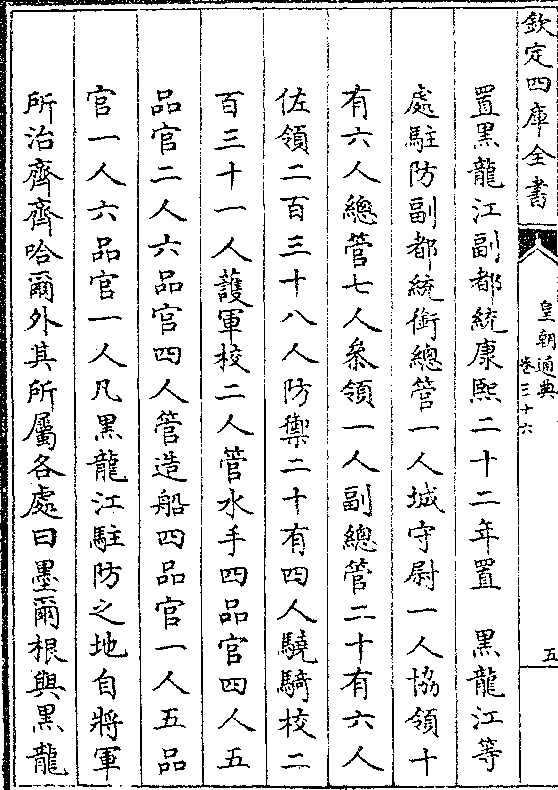 欽定四庫全書
皇朝通典
卷三十六
五
置黑龍江副都統康熙二十二年置　黑龍江等
處駐防副都統銜總管一人城守尉一人協領十
有六人總管七人叅領一人副總管二十有六人
佐領二百三十八人防禦二十有四人驍騎校二
百三十一人護軍校二人管水手四品官四人五
品官二人六品官四人管造船四品官一人五品
官一人六品官一人凡黑龍江駐防之地自將軍
所治齊齊哈爾外其所屬各處曰墨爾根與黑龍